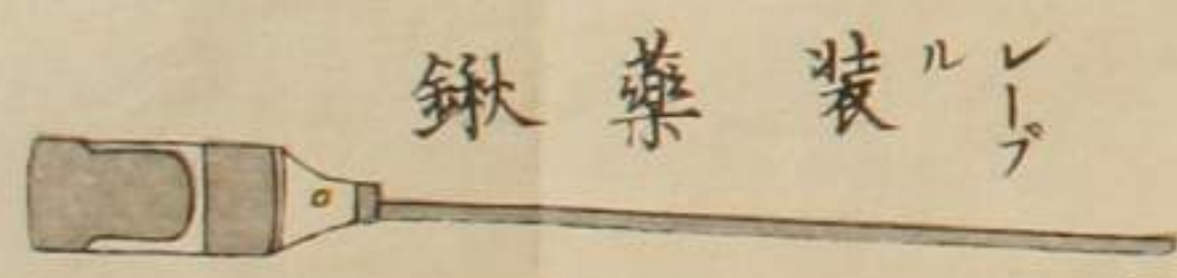 レープ
ル
装藥鍬